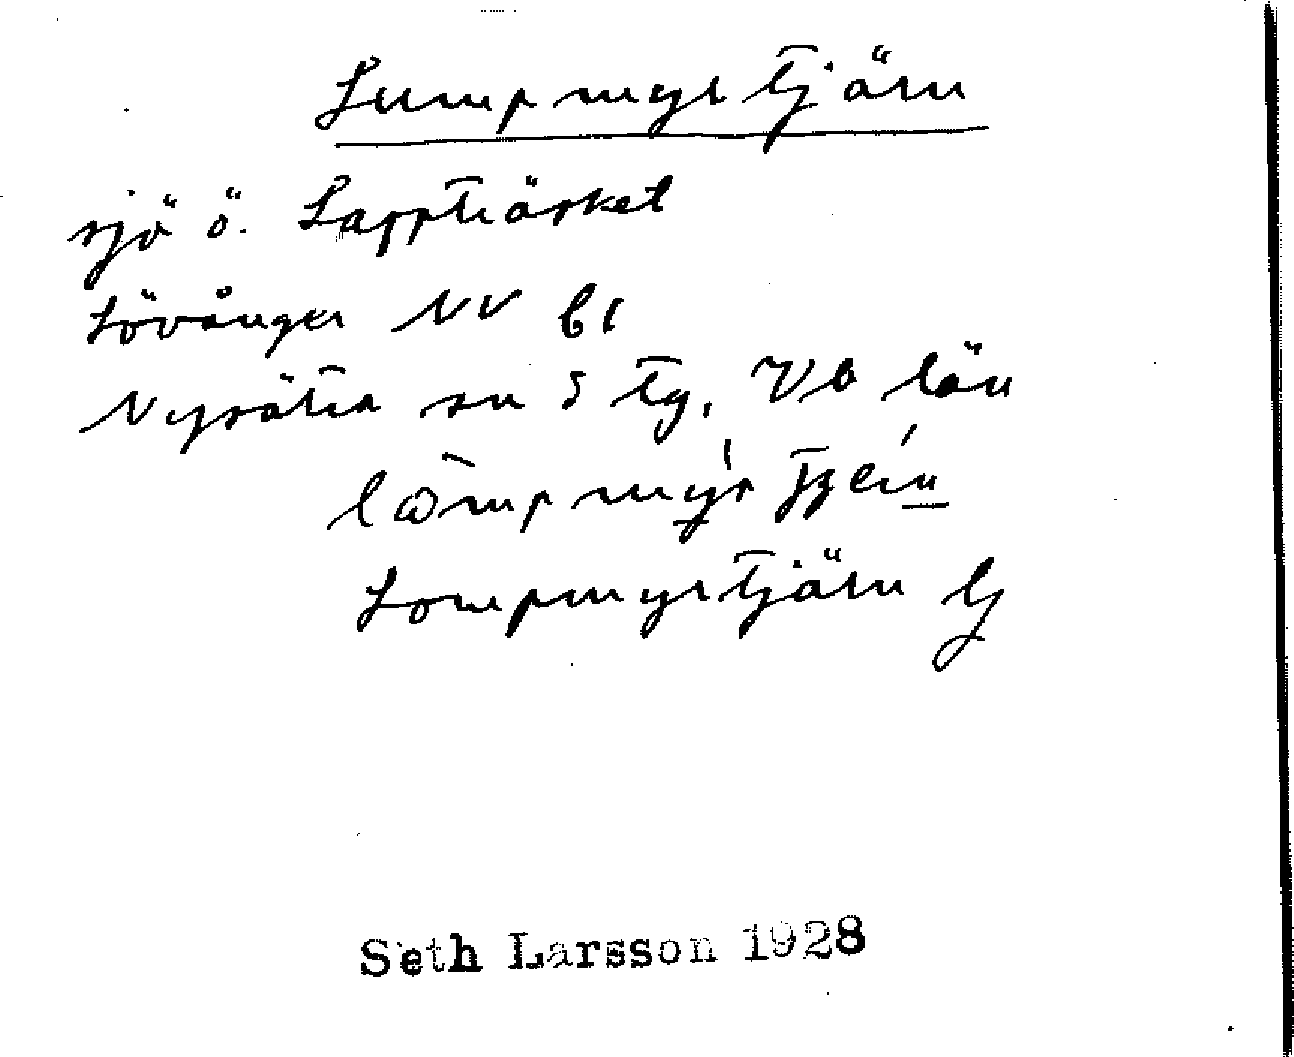 Lumpmyrstjärn
sjö ö. Lappträsket
Lövånger NV bl
Nysätra sn S tg, Vb län
Lompmyrstjärn G
Seth Larsson 1928